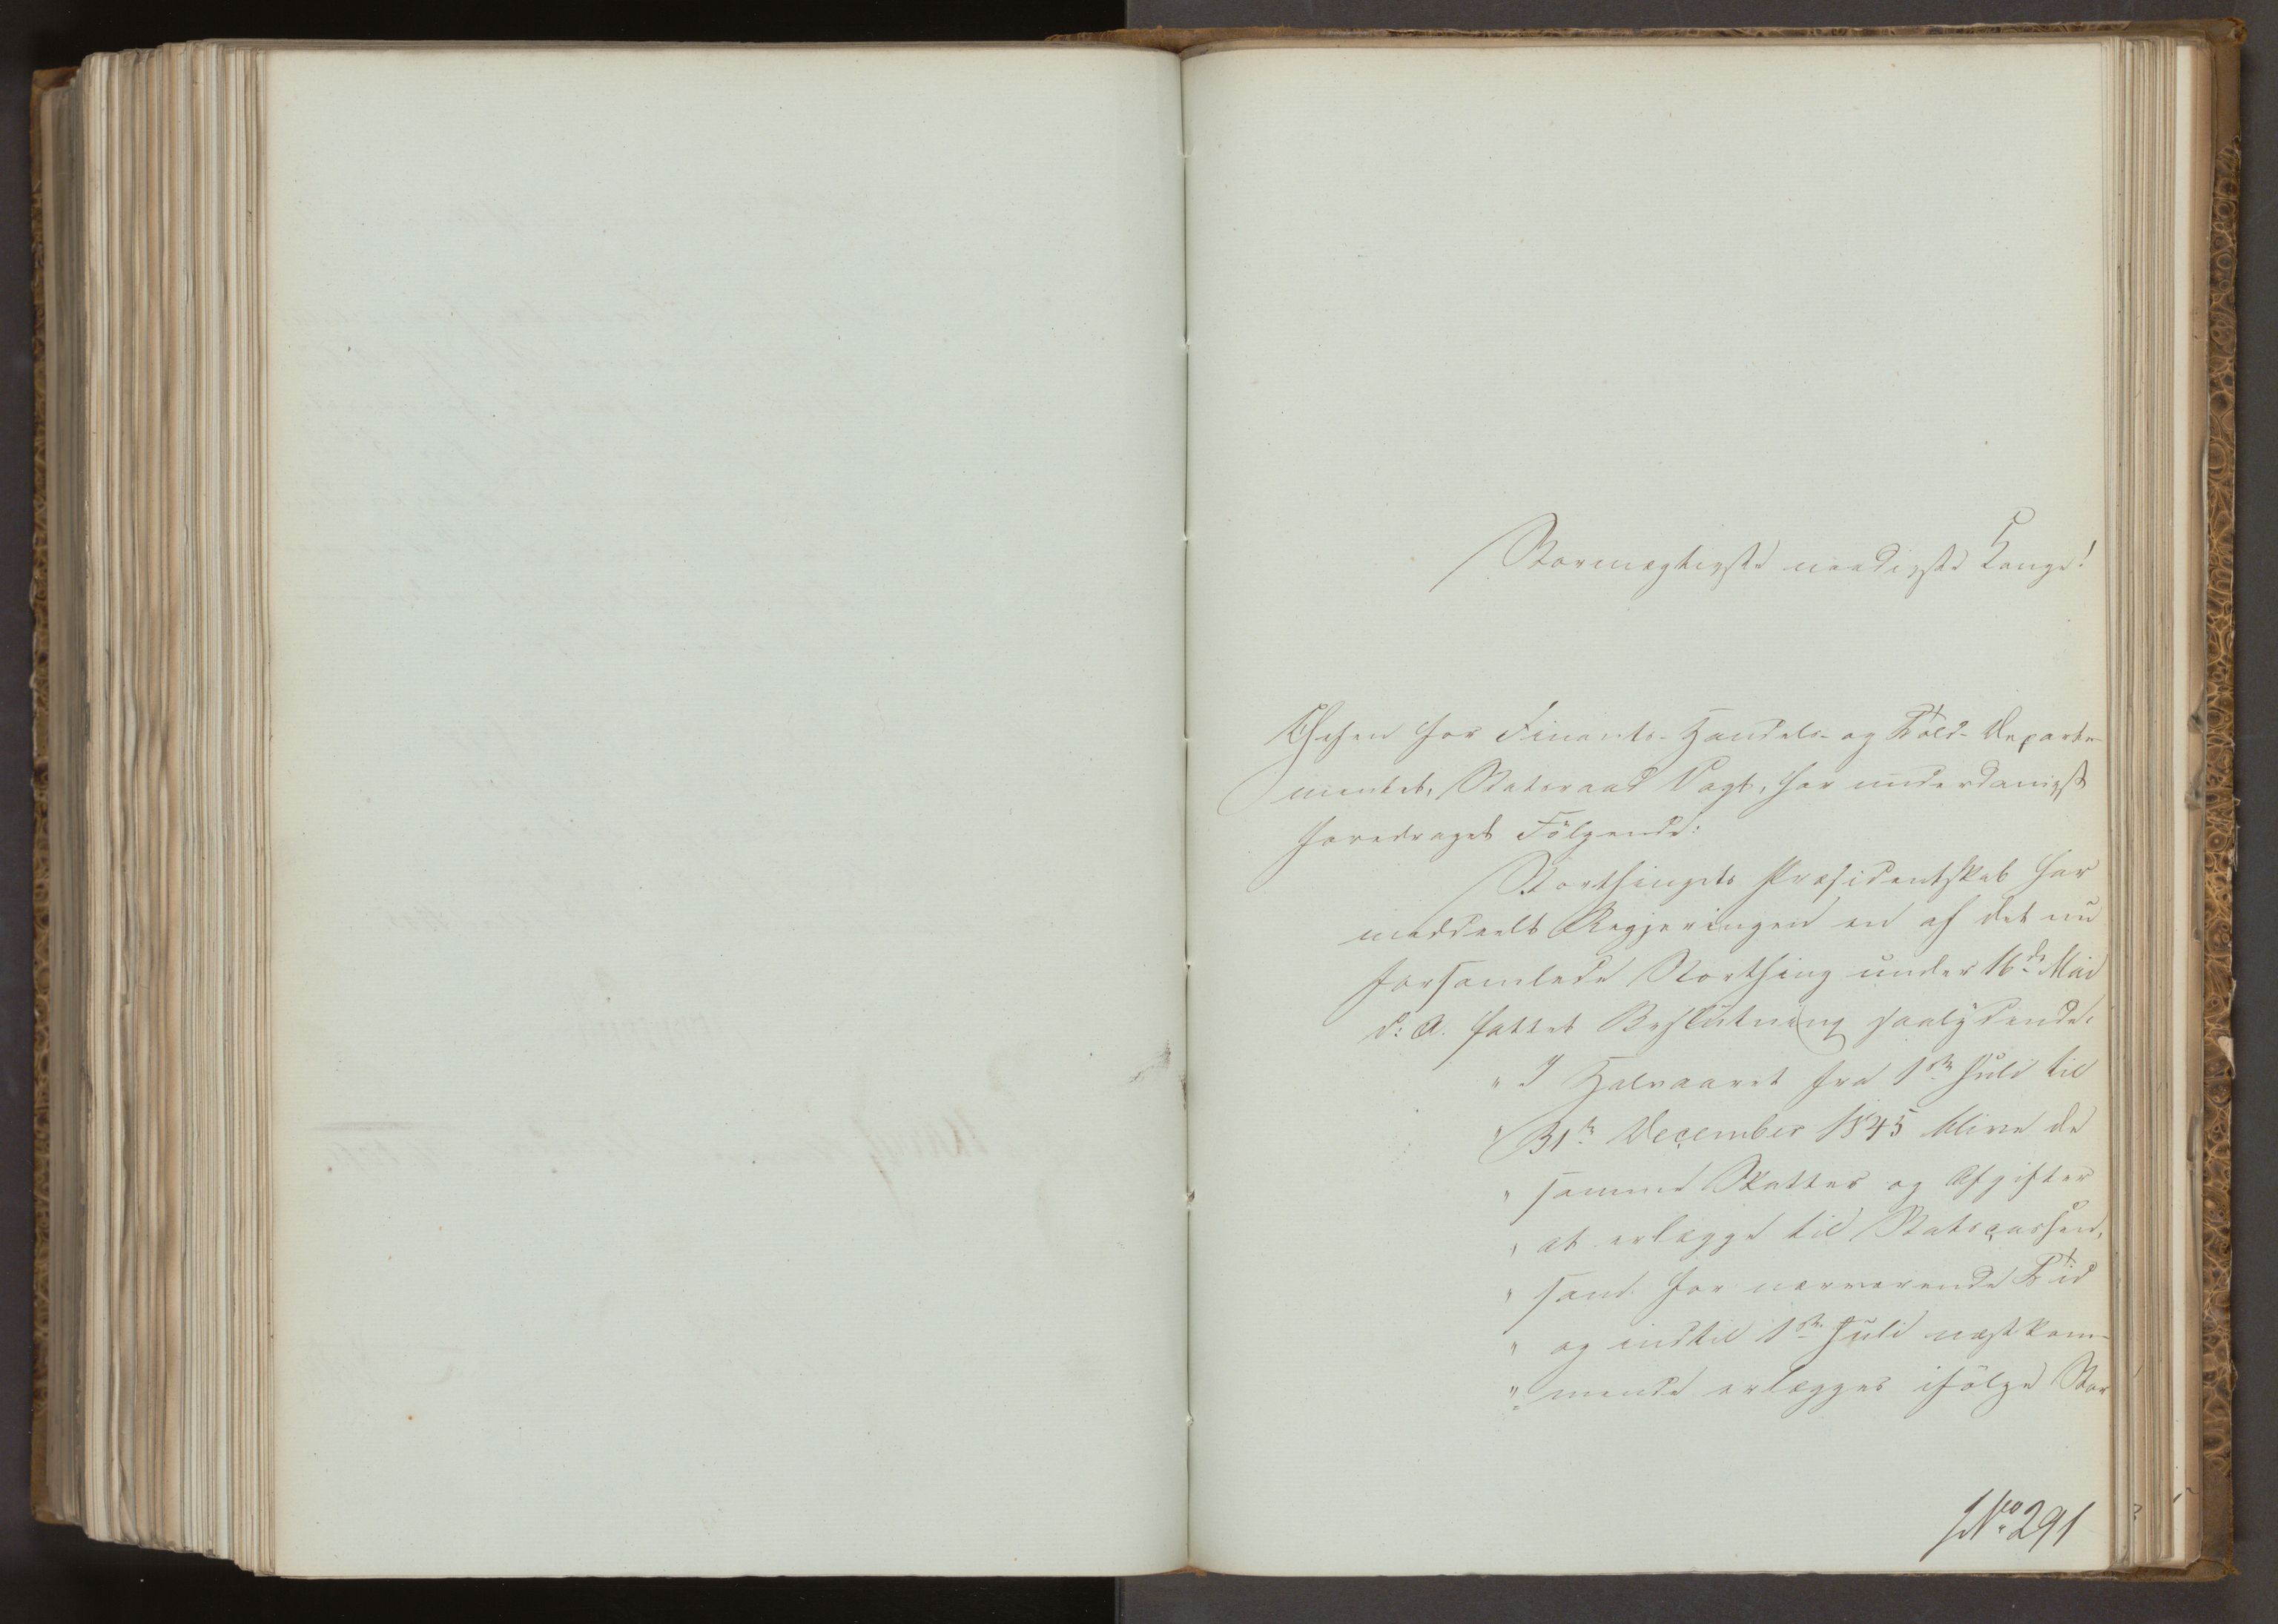 Stormægtigste naadigste Konge!
Chefen for Finants- Handels- og Told- Departe-
mentet, Statsraad Vogt, har underdanigst
foredraget Følgende:
Storthingets Præsidentskab har
meddeelt Regjeringen en af det nu
forsamlede Storthing under 16de Mai
d: A. fattet Beslutning saalydende:
" I Halvaaret fra 1ste Juli til
" 31te December 1845 blive de
" samme Skatter og Afgifter
" at erlægge til Statscassen,
" som for nærværende Tid
" og indtil 1ste Juli næstkom-
" mende erlægges ifølge Stor
No 291